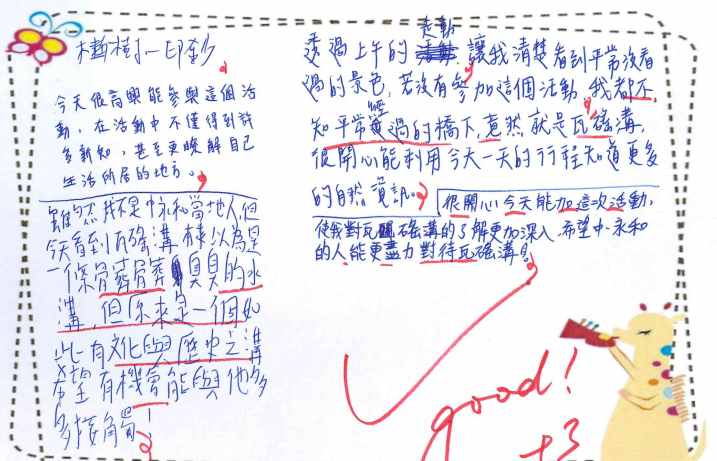 今天很高興能參與這個活
動，在活動中不僅得到許
多新知，甚至更瞭解自己
生活所居的地方。
雖然我不是中永和當地人，但
今天看到瓦磘溝 以為是
一條 臭臭的水
溝，但原來是一個如
此有文化與歷史之溝
希望有機會能與他多
多接觸
透過上午的走動 讓我清楚看到平常沒看
過的景色，若沒有參加這個活動，我都不
知平常經過的橋下，竟然就是瓦磘溝，
很開心能利用今天一天的行程知道更多
的自然資訊。
很開心今天能加這次活動，
使我對瓦磘溝的了解更加深入，希望中永和
的人能更盡力對待瓦磘溝。
good!
+3